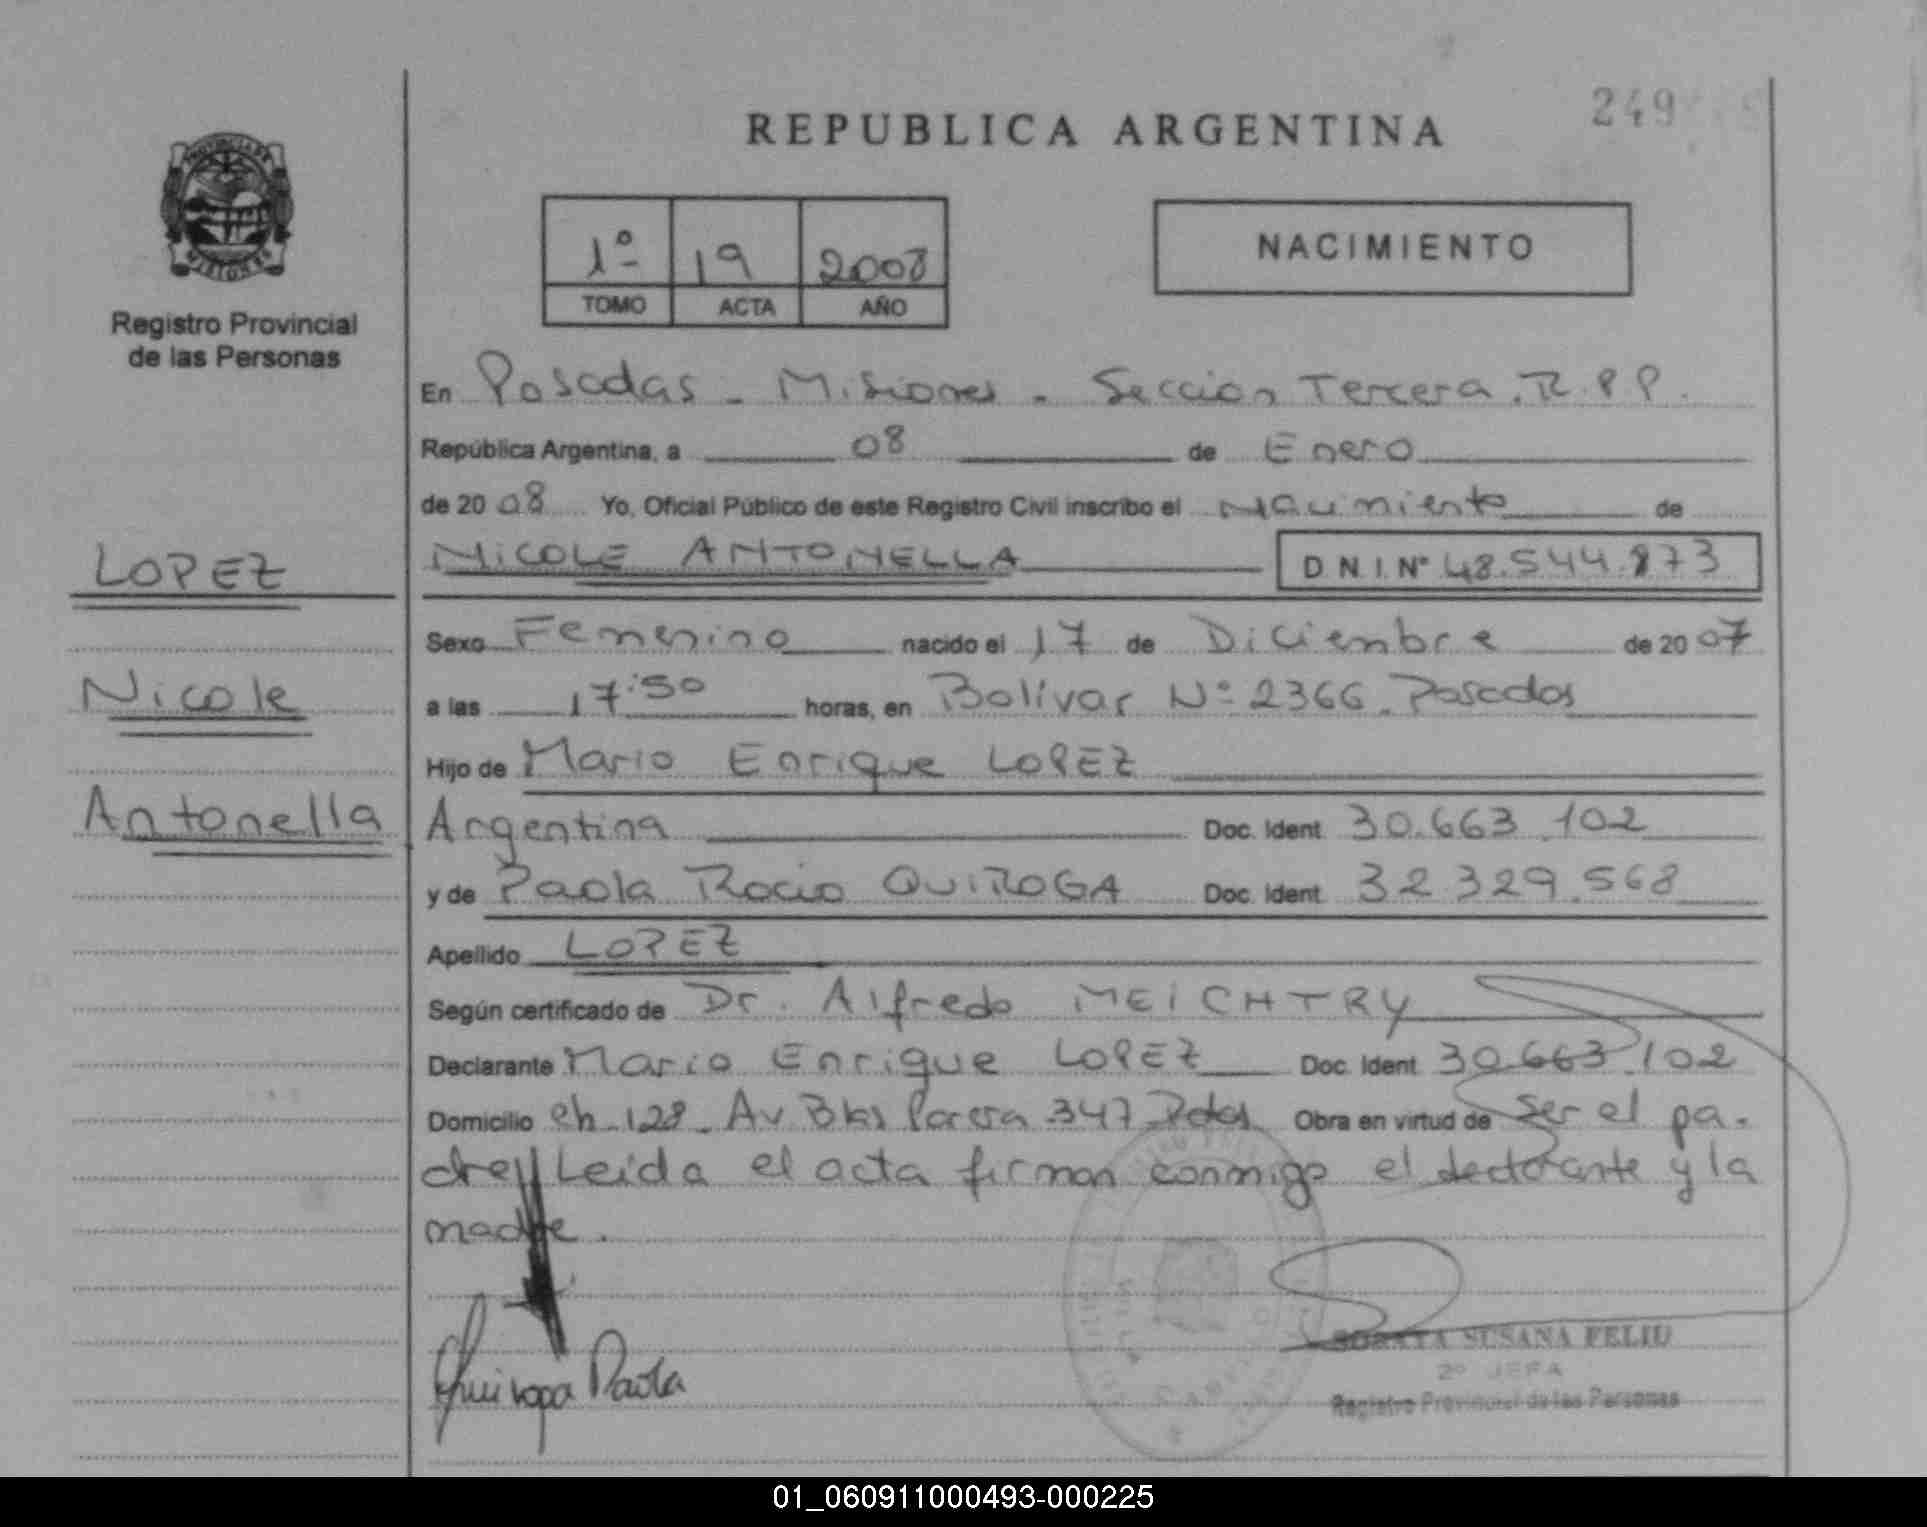 249
REPUBLICA ARGENTINA
PROVINCIA DE
MISIONES
Registro Provincial
de las Personas
1º 19 2008
TOMO ACTA AÑO
NACIMIENTO
En Posadas - Misiones - Seccion Tercera. R.P.P.
República Argentina, a 08 de Enero
de 20 08 Yo, Oficial Público de este Registro Civil inscribo el Nacimiento de
NICOLE ANTONELLA D.N.I. Nº 48.544.873
LOPEZ
Nicole
Antonella
Sexo Femenino nacido el 17 de Diciembre de 20 07
a las 17:50 horas, en Bolívar Nº 2366. Posadas
Hijo de Mario Enrique LOPEZ
Argentina Doc. Ident. 30.663.102
y de Paola Rocio QUIROGA Doc. Ident. 32.329.568
Apellido LOPEZ
Según certificado de Dr. Alfredo MEICHTRY
Declarante Mario Enrique LOPEZ Doc. Ident. 30.663.102
Domicilio ch. 128 - Av Blas Parera 347 Pdas Obra en virtud de ser el pa-
dre// Leida el acta firman conmigo el declarante y la
madre.
Quiroga Paola
SORAYA SUSANA FELIU
2º JEFA
Registro Provincial de las Personas
01_060911000493-000225